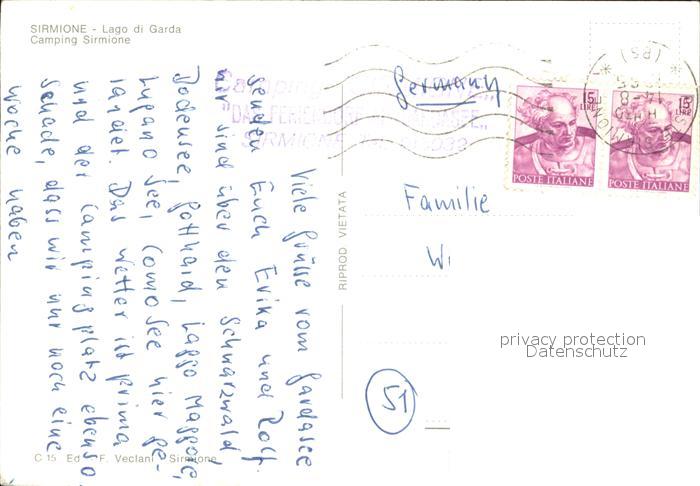 SIRMIONE - Lago di Garda
Camping Sirmione
Viele Grüße vom Gardasee
senden Euch Erika und Rolf.
wir sind über den Schwarzwald
Bodensee, Gotthard, Laggo Maggiore,
Lugano See, Comosee hier ge-
landet. Das Wetter ist prima
und der Campingplatz ebenso
schade, dass wir nur noch eine
Woche haben
Germany
Familie
W
51
RIPROD VIETATA
C 15 Ed. F. Veclani - Sirmione
Camping
SIRMIONE
15 LIRE
POSTE ITALIANE
15 LIRE
POSTE ITALIANE
SIRMIONE
(BS)
privacy protection
Datenschutz